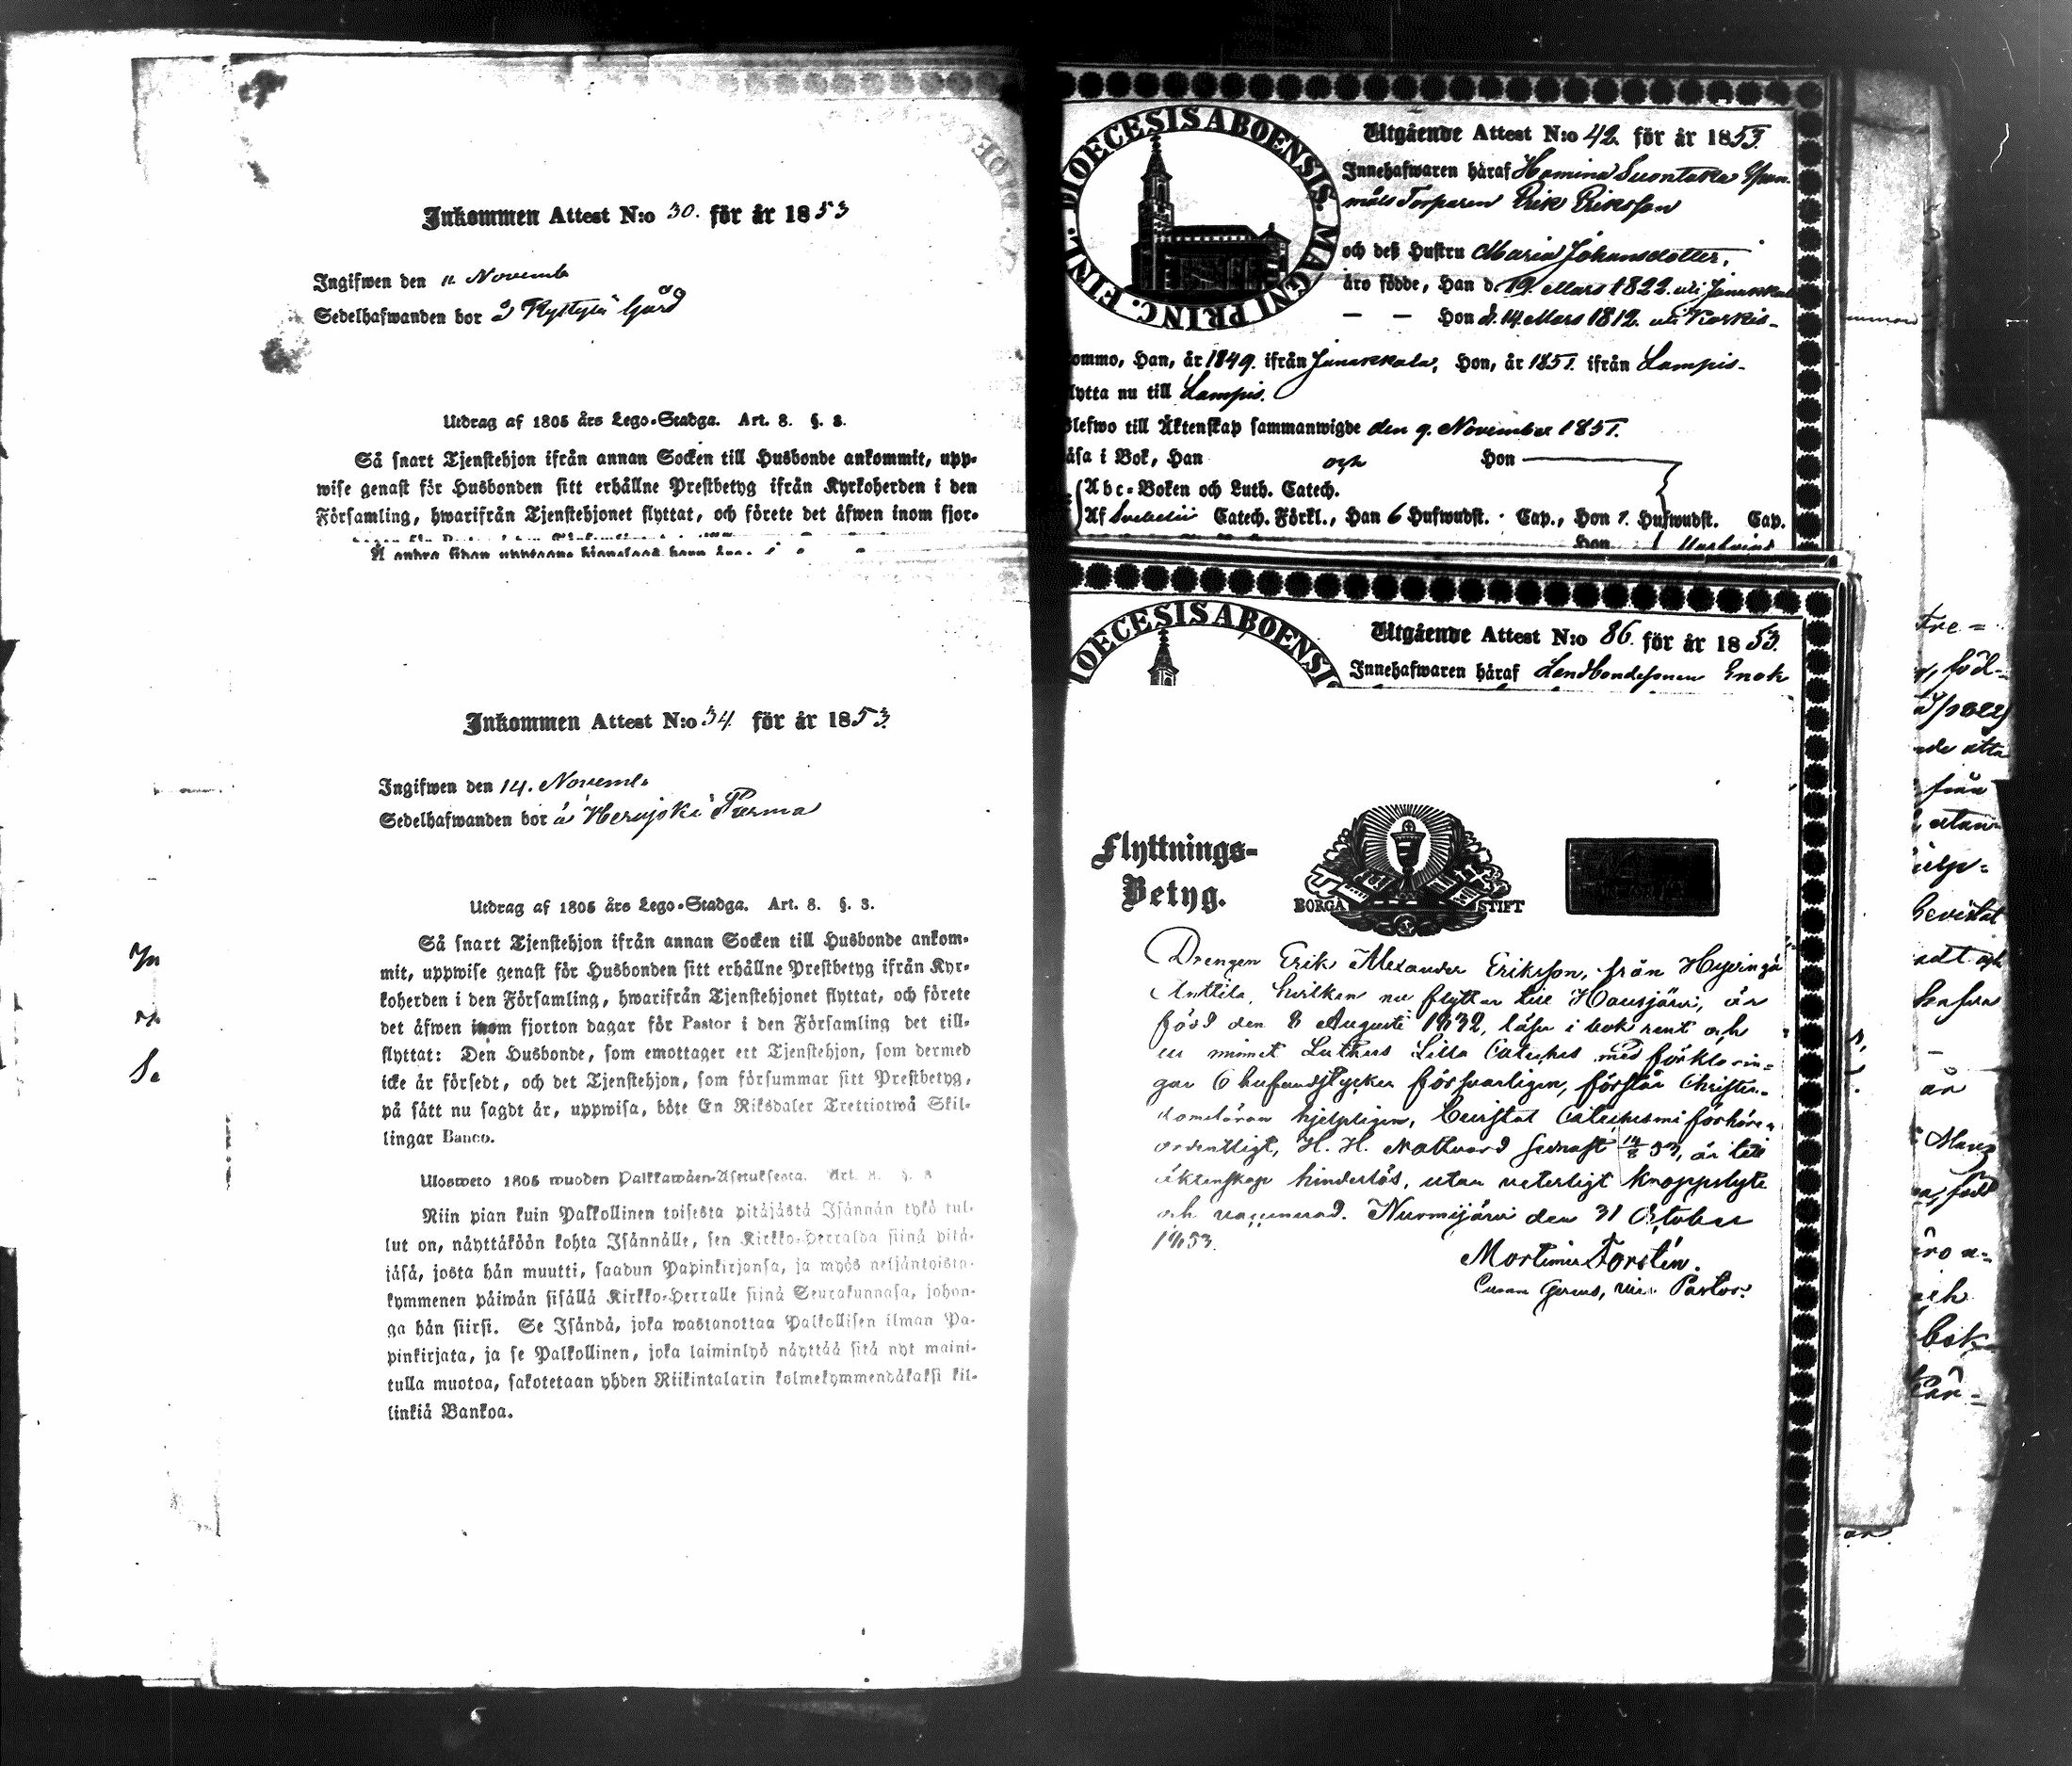 Inkommen Attest N:o 30. för år 1853
Ingifwen den 11. Novemb
Sedelhafwanden bor å Ryttylä Gård
Utdrag af 1805 års Lego-Stadga. Art. 8. §. 3.
Så snart Tjenstehjon ifrån annan Socken till Husbonde ankommit, upp-
wise genast för Husbonden sitt erhållne Prestbetyg ifrån Kyrkoherden i den
Församling, hwarifrån Tjenstehjonet flyttat, och förete det äfwen inom fjor-
Å andra sidan
Inkommen Attest N:o 34. för år 1853.
Ingifwen den 14. Novemb.
Sedelhafwanden bor å Herajoki Perma
Utdrag af 1805 års Lego-Stadga. Art. 8. §. 3.
Så snart Tjenstehjon ifrån annan Socken till Husbonde ankom-
mit, uppwise genast för Husbonden sitt erhållne Prestbetyg ifrån Kyr-
koherden i den Församling, hwarifrån Tjenstehjonet flyttat, och förete
det äfwen inom fjorton dagar för Pastor i den Församling det till-
flyttat: Den Husbonde, som emottager ett Tjenstehjon, som dermed
icke är försedt, och det Tjenstehjon, som försummar sitt Prestbetyg,
på sätt nu sagdt är, uppwisa, böte En Riksdaler Trettiotwå Skil-
lingar Banco.
Ulosweto 1805 wuoden Palkkawäen-Asetuksesta. Art. 8. §. 3
Niin pian kuin Palkollinen toisesta pitäjästä Isännän tykö tul-
lut on, näyttäköön kohta Isännälle, sen Kirkko-Herralda siinä pitä-
jäsä, josta hän muutti, saadun Papinkirjansa, ja myös neljäntoista-
kymmenen päiwän sisällä Kirkko-Herralle siinä Seurakunnasa, johon-
ga hän siirsi. Se Isändä, joka wastanottaa Palkollisen ilman Pa-
pinkirjata, ja se Palkollinen, joka laiminlyö näyttää sitä nyt maini-
tulla muotoa, sakotetaan yhden Riikintalarin kolmekymmendäkaksi kil-
linkiä Bankoa.
DIOECESIS ABOENSIS. MAGNI PRINC. FINL.
Utgående Attest N:o 42. för år 1853.
Innehafwaren häraf Hamina Suontaka
måls Torparen Erik Eriksson
och deß Hustru Maria Johansdotter,
äro födde, Han d. 19. Mars 1822. uti Janakkala
— — Hon d. 14. Mars 1812. uti Karkis-
ommo, Han, år 1849. ifrån Janakkala, Hon, år 1851. ifrån Lampis-
lytta nu till Lampis.
Blefwo till Äktenskap sammanwigde den 9. November 1851.
äsa i Bok, Han och Hon
Abc-Boken och Luth. Catech.
Af Svebelii Catech. Förkl., Han 6 Hufwudst. Cap., Hon 1. Hufwudst. Cap.
Hon
OECESIS ABOENSIS
Utgående Attest N:o 86. för år 1853.
Innehafwaren häraf Landbondesonen Enok
Flyttnings-
Betyg.
BORGÅ STIFT
Drengen Erik Alexander Eriksson, från Hyvingä
Anttila, hvilken nu flyttar till Hausjärvi, är
född den 8 Augusti 1832, läser i bok rent och
ur minnet Luthers Lilla Cateches med förklarin-
gar 6 hufvudstycken försvarligen, förstår Christen-
domsläran hjelpligen, bevistat Catechismi förhören
ordentligt, H. H. Nattvard sednast 53, är till
äktenskap hinderlös, utan veterligt knoppslyte
och vaccinerad. Nurmijärvi den 31 October
1853.
Mortimer Forstén.
Pastor.